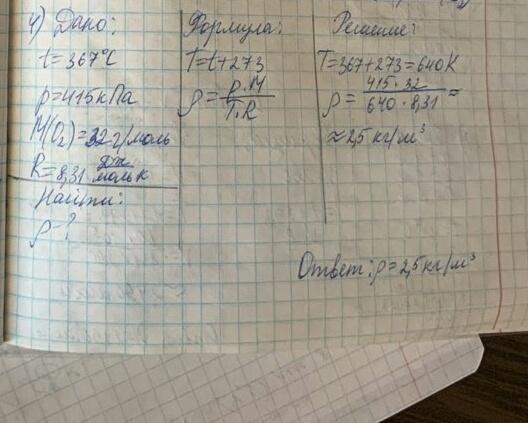 4) Дано:
t = 367°C
p = 415 кПа
M(O₂) = 32 г/моль
R = 8,31 Дж/моль К
Найти:
ρ - ?
Формула:
T = t + 273
ρ = p · M / T · R
Решение:
T = 367 + 273 = 640 K
ρ = 415 · 32 / 640 · 8,31 =
≈ 2,5 кг/м³
Ответ: ρ = 2,5 кг/м³